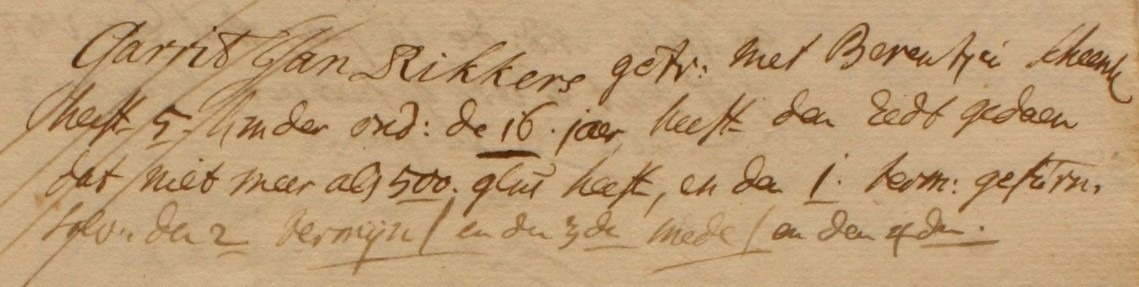 Garrit Jan Rikkers getr: met Berentjen Scheenk
heeft 5 kinder ond: de 16. jaer, heeft den Eedt gedaen
dat niet meer als 500. glns heeft, en den 1. term: gefurn.
solv: den 2 termijn / en den 3den mede / en den 4den.